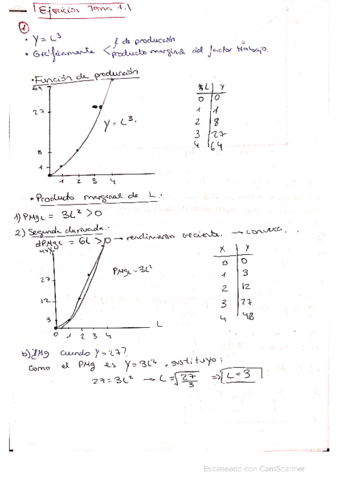 Ejercicios Tema 1.
①
• Y = L³
• Gráficamente < f de producción
producto marginal del factor trabajo.
• Función de producción
64
27
8
1
1 2 3 4
Y = L³.
L Y
0 0
1 1
2 8
3 27
4 64
• Producto marginal de L.
1) PMgL = 3L² > 0
2) Segunda derivada.
dPMgL = 6L > 0 → rendimientos creciente. → convexa.
27
12
3
1 2 3 4
L
PMgL = 3L²
X Y
0 0
1 3
2 12
3 27
4 48
b) PMg cuando Y = 27?
Como el PMg es Y = 3L², sustituyo:
27 = 3L² → L = √27/3 ⇒ L = 3
Escaneado con CamScanner